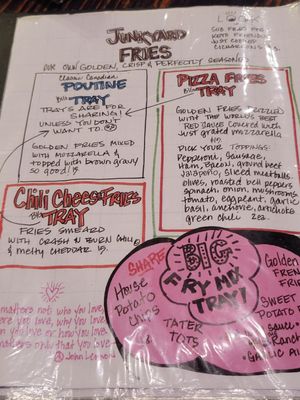 JUNKYARD
FRIES
OUR OWN GOLDEN, CRISP & PERFECTLY SEASONED
SUB FRIES FOR
Classic Canadian
POUTINE
TRAY
TRAYS ARE FOR
SHARING!
UNLESS YOU DON'T
WANT TO
GOLDEN FRIES MIXED
WITH MOZZARELLA &
topped with brown gravy
so good!
PIZZA FRIES
TRAY
GOLDEN FRIES
WITH THE WORLDS BEST
RED SAUCE COVERED with
Just grated mozzarella
PICK YOUR TOPPINGS:
Pepperoni, Sausage,
Ham, Bacon, ground beef
Jalapeño, sliced meatballs
olives, roasted bell peppers
spinach, onion, mushrooms
tomato, eggplant, garlic
basil, anchovie, artichoke
green chili 2 ea.
Chili Cheese Fries
TRAY
FRIES SMEARD
WITH CRASH N BURN CHILI
& melty CHEDDAR
BIG
FRY MIX
TRAY!
SHARE
House
Potato
Chips
&
TATER
TOTS
Golden
FREN
FRIE
SWEET
POTATO F
sauc
Ranch
GARLIC
matters not who you love,
ere you love, why you
n you love or how you love
matters only that you love
John Lennon